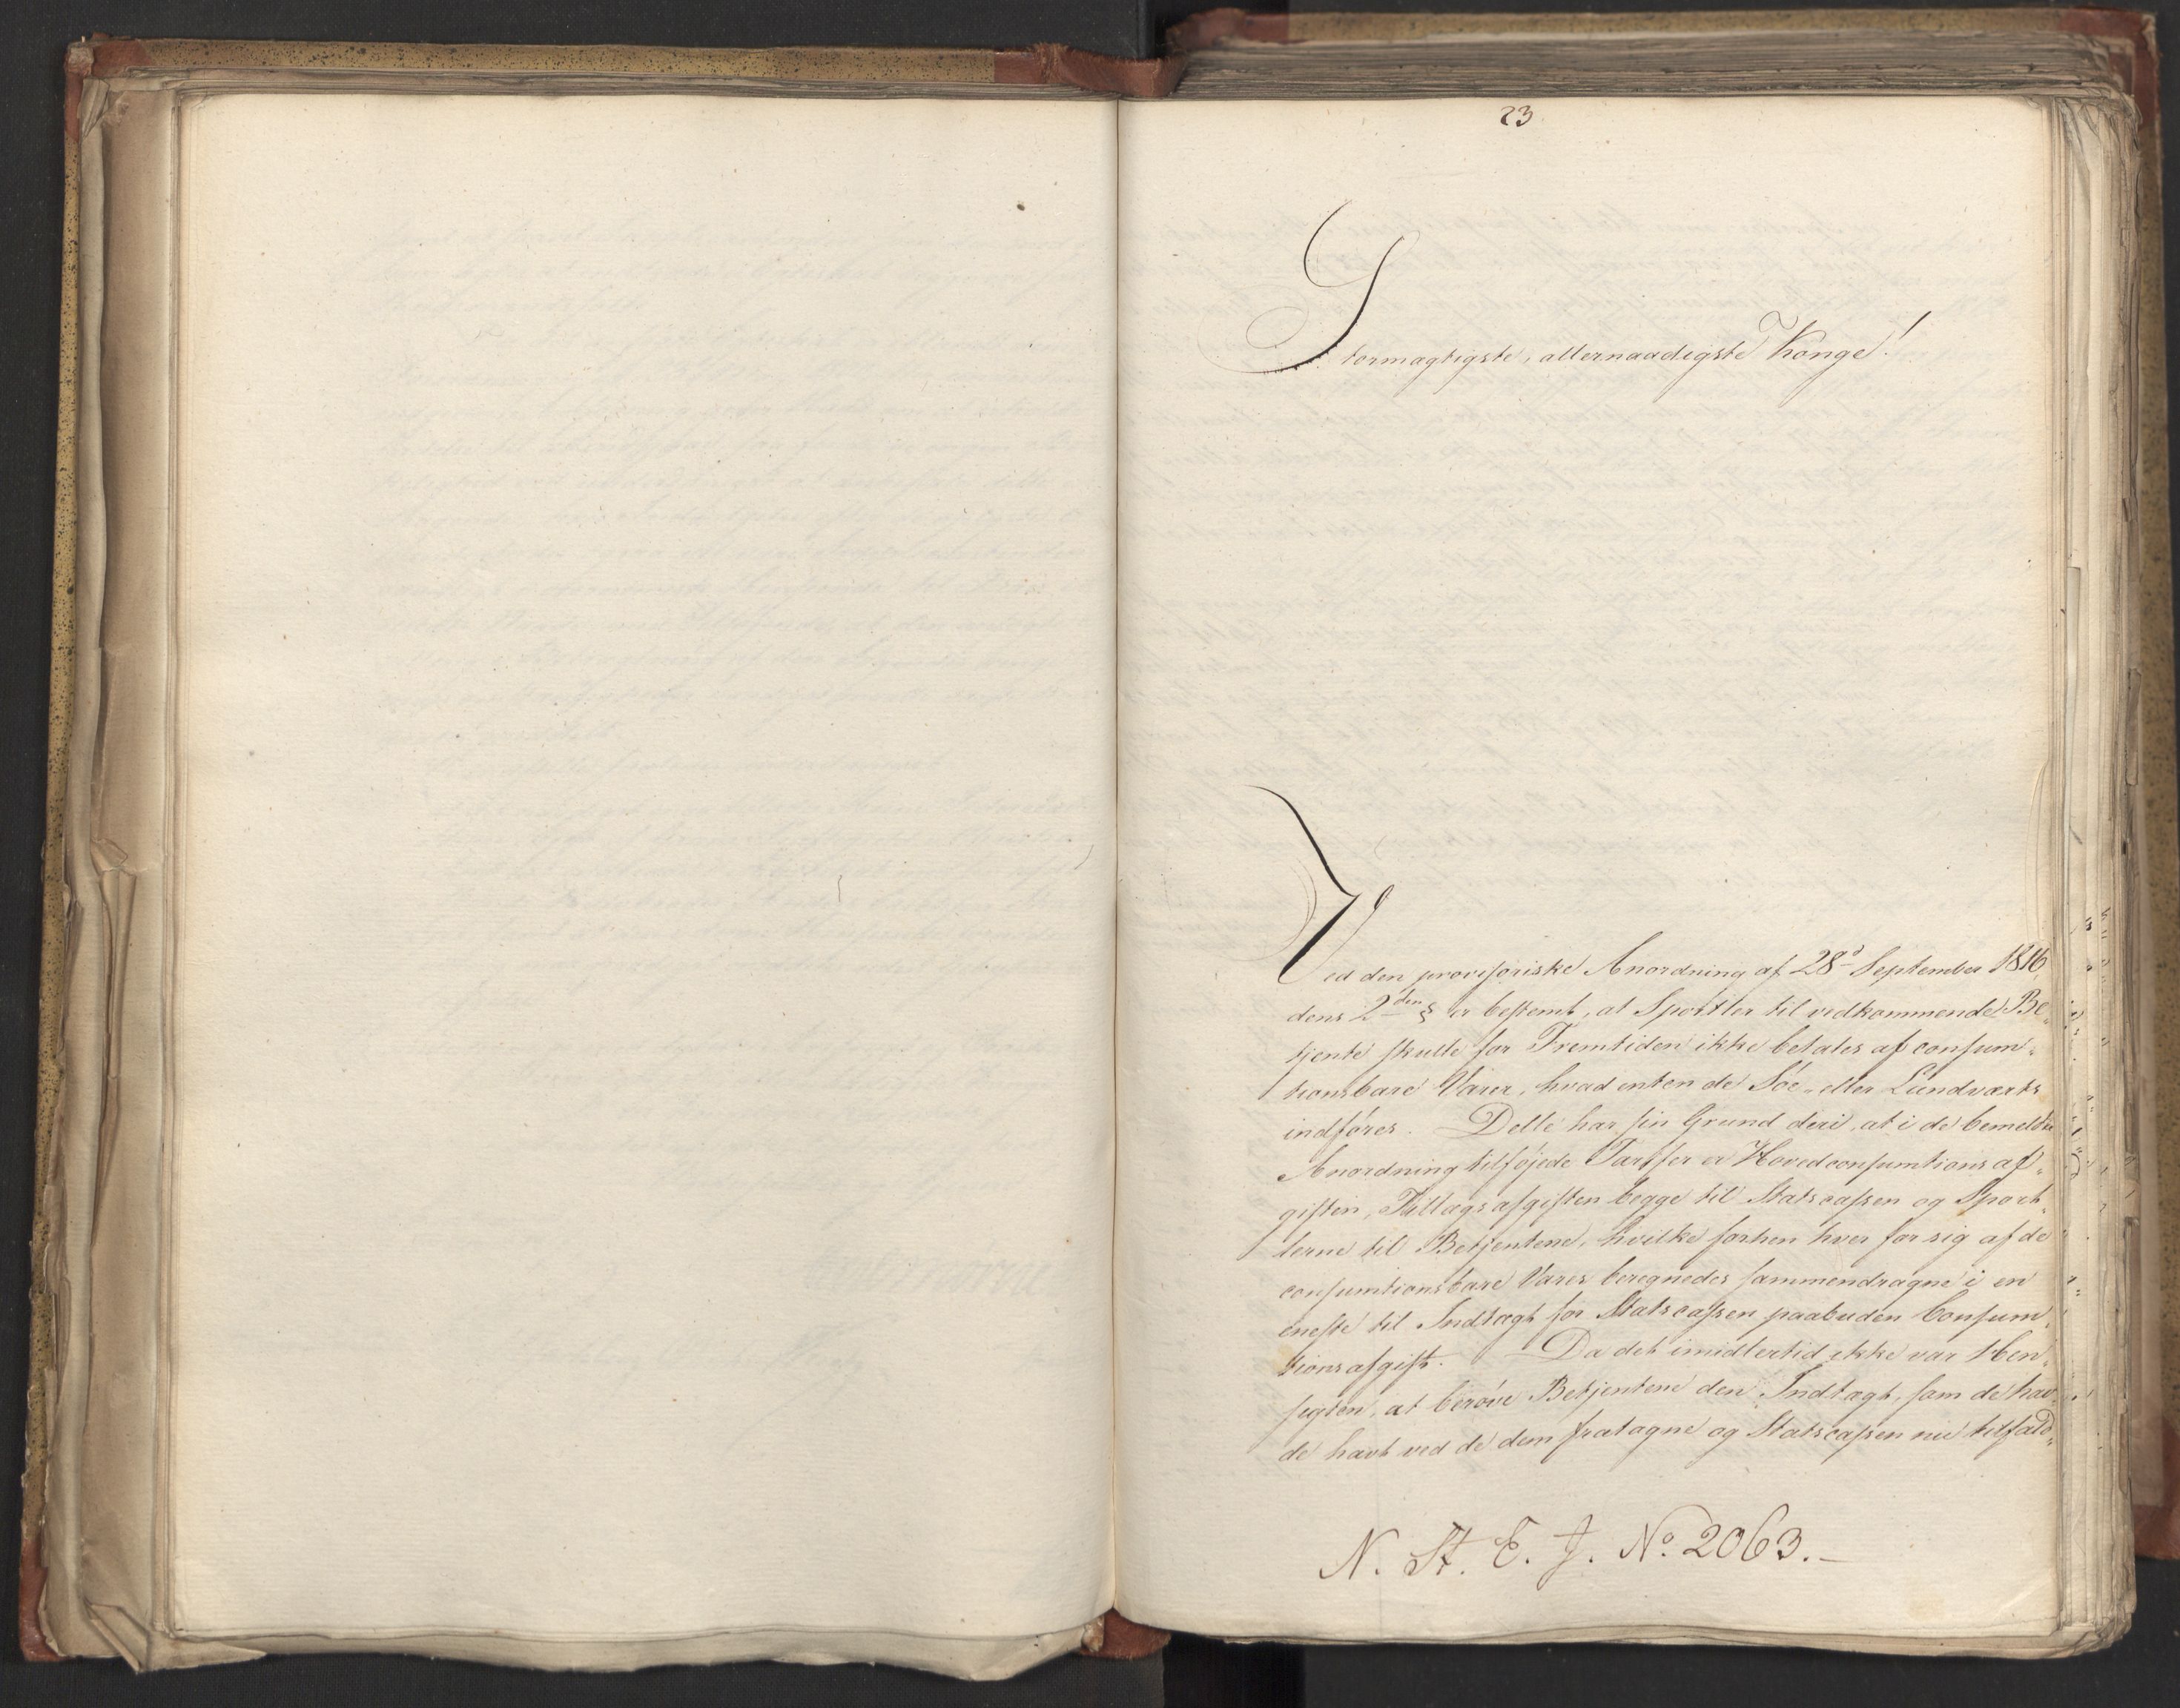 23
Stormagtigste, allernaadigste Konge!
Ved den provisoriske Anordning af 28d September 1816,
dens 2den § er bestemt, at Sportler til vedkommende Be-
tjente skulle for Fremtiden ikke betales af consum-
tionsbare Varer, hvad enten de Søe- eller Landværts
indføres. Dette har sin Grund deri, at i de bemeldte
Anordning tilføjede Tariffer er Hovedconsumtionsaf-
giften, Tillægsafgiften begge til Statscassen og Sport-
lerne til Betjentene, hvilke forhen hver for sig af de
consumtionsbare Varer beregnedes sammendragne i en
eneste til Indtægt for Statscassen paabuden Consum-
tionsafgift. Da det imidlertid ikke var Hen-
sigten, at berøve Betjentene den Indtægt, som de hav-
de havt ved de dem fratagne og Statscassen nu tilfald-
N. St. E. J. No. 2063.